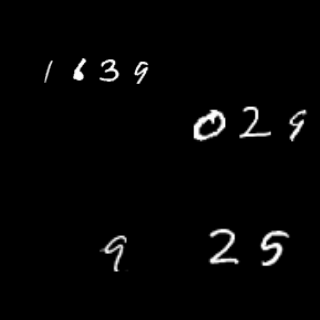 1639
029
9
25